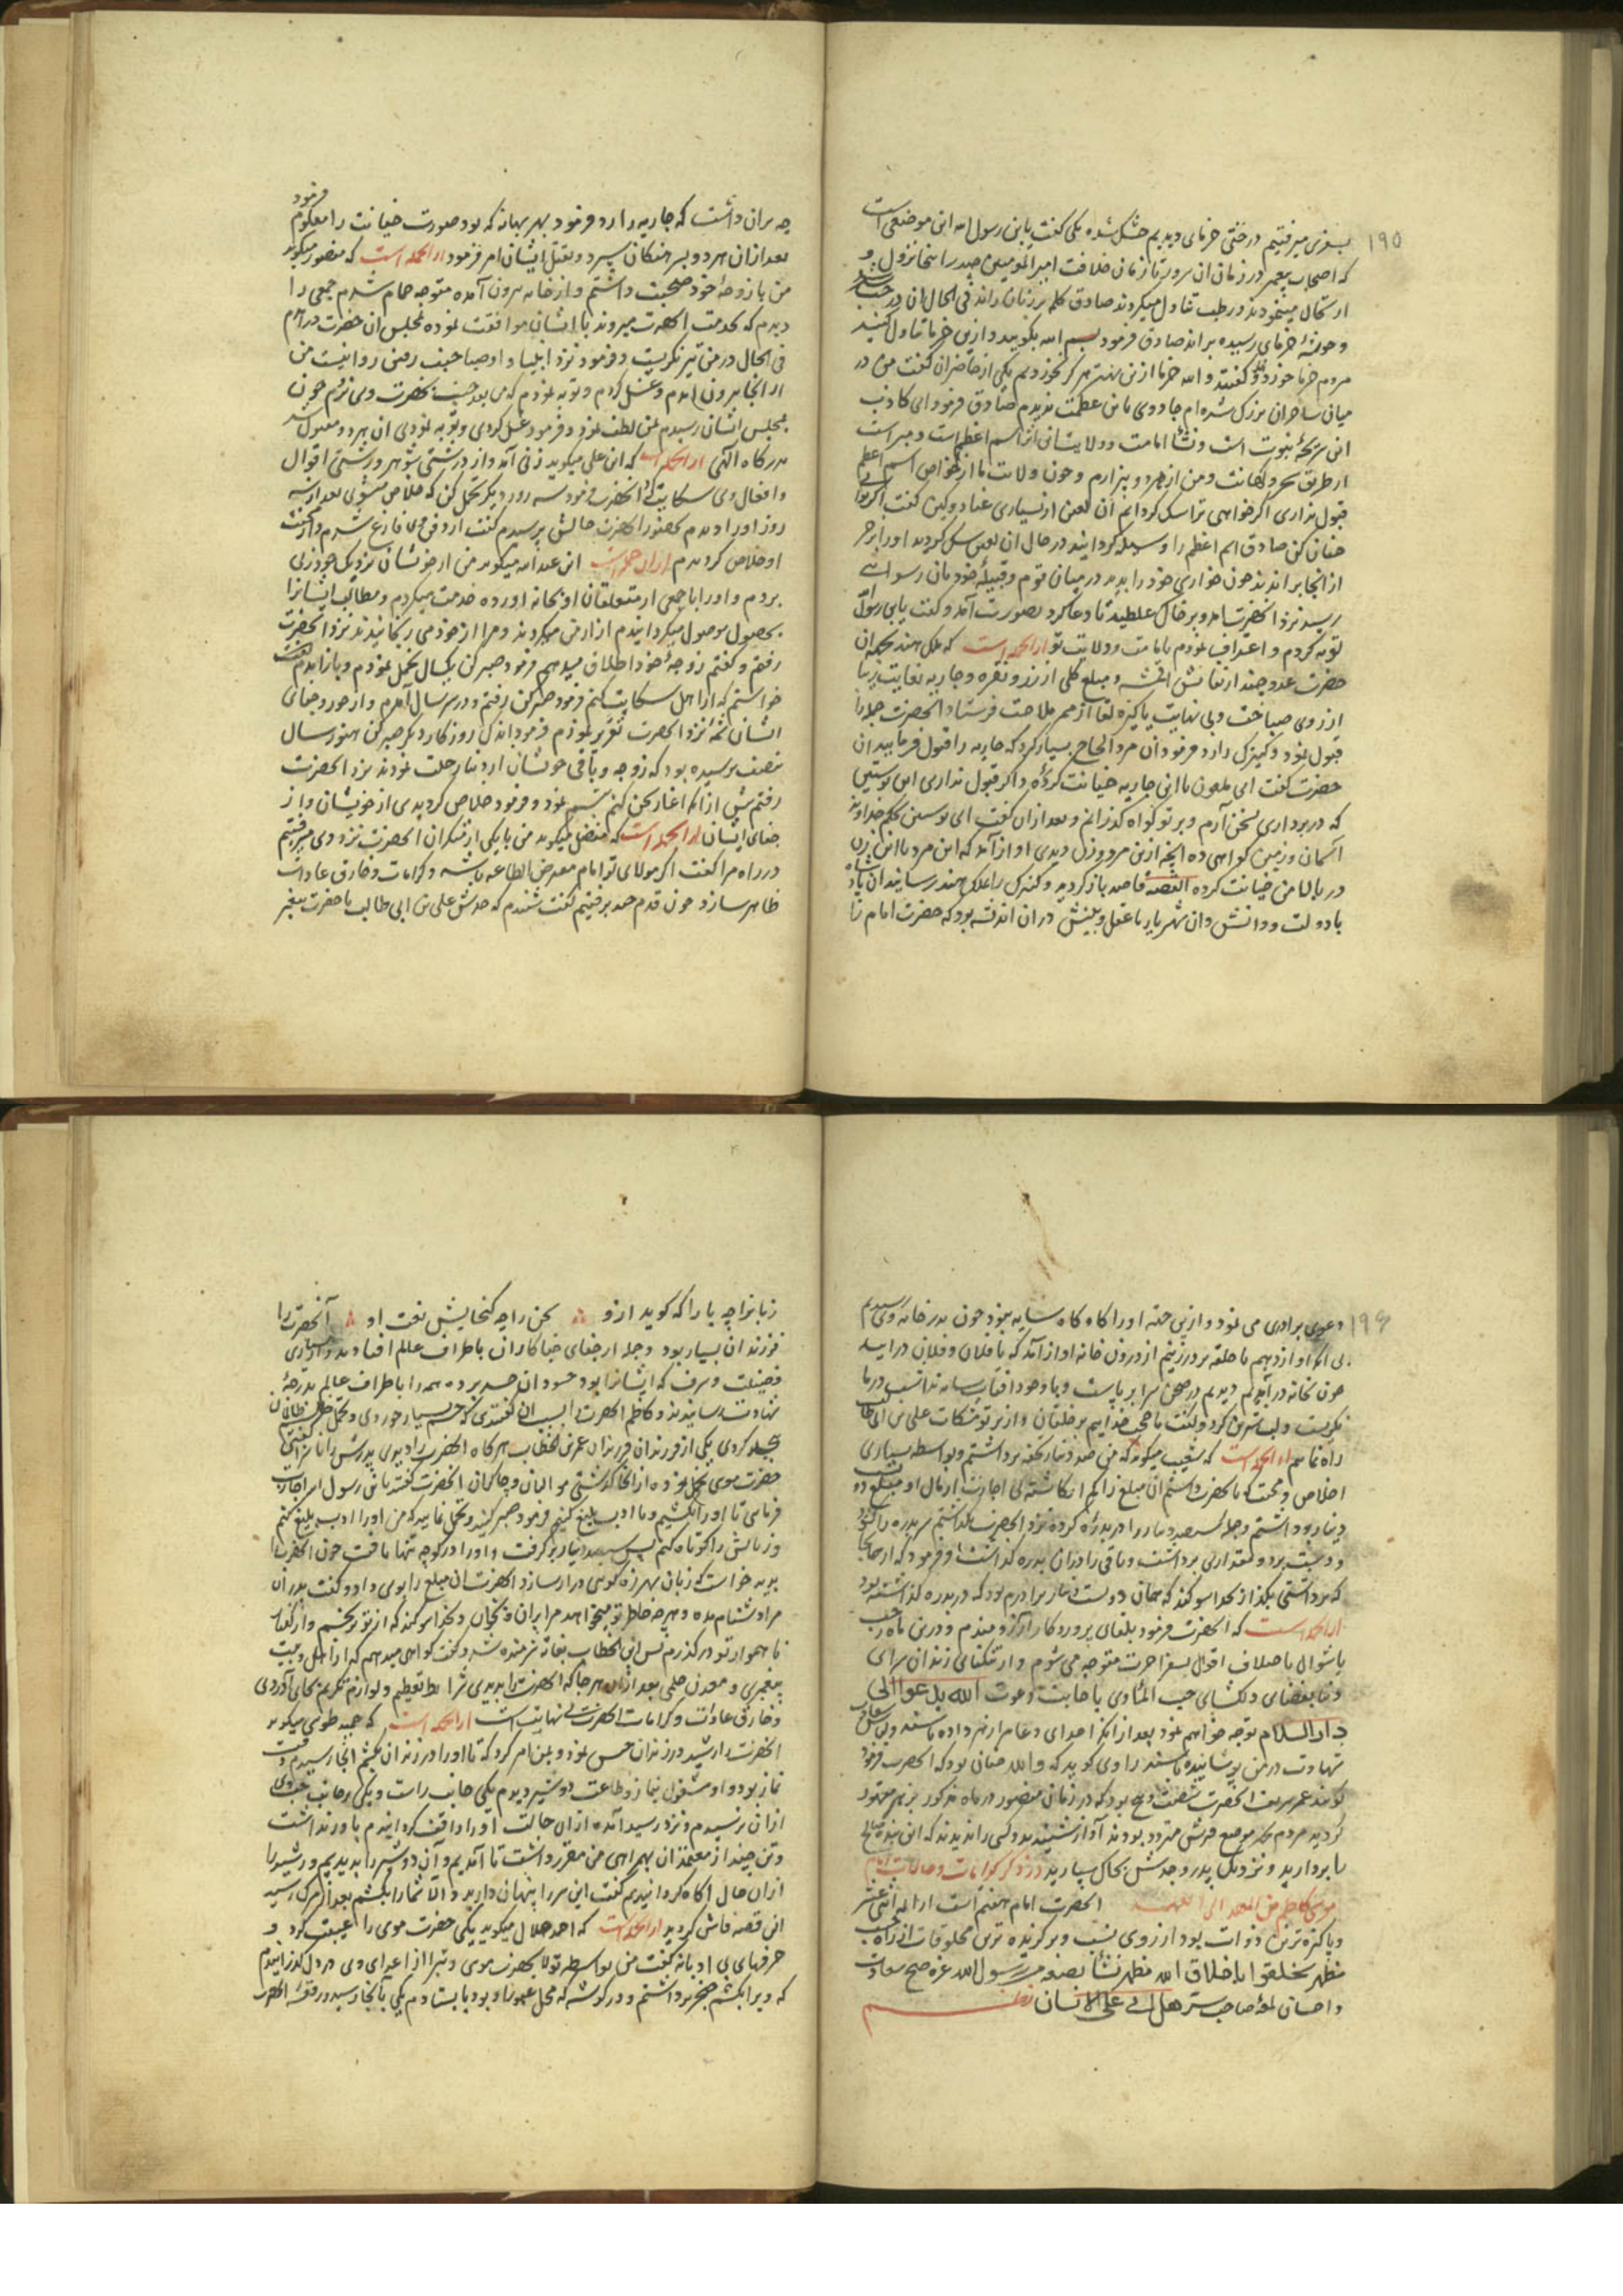 ۱۹۵
بسفری میرفتیم درختی خرمای دیدیم خشک شده یکی گفت یا بن رسول الله این موضعی است
که اصحاب پیغمبر در زمان ان سرور تا زمان خلافت امیر المومنین حیدر اینجا نزول و
ارتحال مینمودند و رطب تناول میکردند صادق کلمه بر زبان راند فی الحال ان درخت سبز شد
و خوشهٔ خرمای رسیده بر آمد صادق فرمود بسم الله بگویید و ازین خرما تناول کنید
مردم خرما خوردند و گفتند والله خرما ازین بهتر هرگز نخوردیم یکی از حاضران گفت من در
میان ساحران بزرگ شده ام جادوی باین عظمت ندیدم صادق فرمود ای کاذب
این نتیجهٔ نبوت است و نشأ امامت و ولایت نه اثر اسم اعظم است و میراست
از طریق سحر و کهانت و من از هر دو بیزارم و چون ولایت ما از خواص اسم اعظم
قبول نداری اگر خواهی ترا سک کردانم ان لعین از بسیاری عناد و کین گفت اگر توانی
چنان کن صادق اسم اعظم را وسیله کردانید در حال ان لعین سک کردید او را بزجر
از انجا براندند چون خواری خود را بدید در میان قوم و قبیلهٔ خود بان رسوایی
رسید نزد انحضرت امد و بر خاک غلطید تا دعا کرد بصورت آمد و گفت یابن رسول
توبه کردم و اعتراف نمودم بامامت و ولایت تو از انجمله است که ملک هند بحکم ان
حضرت عددی چند از نفائس اقمشه و مبلغ کلی از زر و نقره و جاریه بغایت زیبا
از روی صباحت و بی نهایت پاکیزه لقا از ممر ملاحت فرستاد انحضرت جمله را
قبول نمود و کنیزک را رد فرمود ان مرد الحاح بسیار کرد که جاریه را قبول فرمایید ان
حضرت گفت ای ملعون با این جاریه خیانت کردهٔ و اگر قبول نداری این پوستین
که در بر داری بسخن آرم و بر تو گواه گذرانم و بعد از ان گفت ای پوستین بحکم خداوند
آسمان و زمین گواهی ده انچه ازین مرد و زن دیدی اواز آمد که این مرد با این زن
در بالای من خیانت کرده القصه قاصد باز کردید و کنیزک را بملک هند رسانید ان پادشاه
با دولت و دانش وان شهریار با عقل و بینش در ان اندیشه بود که حضرت امام را
چه بران داشت که جاریه را رد فرمود بهر بهانه که بود صورت خیانت را معلوم فرمود
بعد از ان هر دو بسرهنکان سپرد و بقتل ایشان امر فرمود از انجمله است که منصور میکوید
من با زوجهٔ خود صحبت داشتم و از خانه بیرون آمده متوجه حمام شدم جمعی را
دیدم که بخدمت انحضرت میروند با ایشان موافقت نموده بمجلس ان حضرت در آمدم
فی الحال در من تیز نگریست و فرمود نزد انبیا و اوصیا جنب رفتن روا نیست من
از انجا بیرون آمدم و غسل کردم و توبه نمودم که من بعد جنب نزد انحضرت نروم چون
بمجلس ایشان رسیدم بمن لطف نمود و فرمود غسل کردی و توبه نمودی ان هر دو مقبول شد
بدرکاه الهی از انجمله است که ابن علی میکوید زنی آمد و از درشتی شوهر و زشتی اقوال
و افعال وی شکایت کرد انحضرت فرمود سه روز دیگر تحمل کن که خلاص میشوی بعد از سه
روز او را دیدم بحضور انحضرت حالش پرسیدم گفت از دفن وی فارغ شدم و از محنت
او خلاص کردیدم از ان جمله است ابن عبد الله میکوید من از خویشان نزدیک خود زنی
بردم و او را با جمعی از متعلقان او بخانه اورده خدمت میکردم و مطالب ایشانرا
بحصول موصول میکردانیدم ازار من میکردند و مرا از خود می رنجانیدند نزد انحضرت
رفتم و گفتم زوجهٔ خود را طلاق میدهم فرمود صبر کن یکسال تحمل نمودم و باز آمدم
خواستم که از اهل شکایت کنم فرمود صبر کن رفتم و در سر سال آمدم و از جور و جفای
ایشان شمهٔ نزد انحضرت تقریر نمودم فرمود اندک روزکار دیگر صبر کن هنوز سال
بنصف نرسیده بود که زوجه و باقی خویشان از دنیا رحلت نمودند نزد انحضرت
رفتم پیش از انکه اغاز سخن کنم تبسم نمود و فرمود خلاص کردیدی از خویشان و از
جفای ایشان از انجمله است که مفضل میکوید من با یکی از منکران انحضرت نزد وی میرفتیم
در راه مرا گفت اگر مولای تو امام مفترض الطاعه باشد و کرامات و خارق عادات
ظاهر سازد چون قدم چند برفتیم گفت شنیدم که جدش علی بن ابی طالب با حضرت پیغمبر
۱۹۶
دعوی برادری می نمود و ازین جهت او را گاه گاه سایه نبود چون بدر خانه وی رسیدیم
بی انکه اواز دهیم یا حلقه بر در زنیم از درون خانه اواز آمد که یا فلان و فلان در ایید
چون بخانه در آمدیم دیدیم در صحن سرا بر پاست و با وجود افتاب سایه نداشت در ما
نگریست و لب شیرین کرد و گفت ما حجت خداییم بر خلقان و از پرتو مشکات علی بن ابی طالب
راه نماییم از انجمله است که شعیب میکوید که من صد دینار بتحفه برداشتم و بواسطه بسیاری
اخلاص و محبت که بانحضرت داشتم ان مبلغ را کم انگاشته بی اجازت از مال او مبلغ دو
دینار برداشتم و جمله سیصد دینار را در بدره کرده نزد انحضرت گذاشتم سر بدره را گشود
و دست برد و مقداری برداشت و باقی را در ان بدره گذاشت و فرمود که از انجا
که برداشتی بگذار بخدا سوگند که همان دویست دینار برادرم بود که در بدره گذاشته بود
از انجمله است که انحضرت فرمود بلقای پروردکار آرزومندم و درین ماه رجب
یا شوال باختلاف اقوال بسفر اخرت متوجه می شوم و از تنگنای زندان سرای
دنیا بفضای دلکشای جنت الماوی باجابت دعوت الله یدعوا الی
دار السلام توجه خواهم نمود بعد از انکه اعدای دعا مرا زهر داده باشند ولباس سعادت
شهادت در من پوشانیده باشند راوی گوید که والله چنان بود که انحضرت فرمود
گویند عمر شریف انحضرت شصت و پنج بود که در زمان منصور در ماه مذکور بزهر مقتول
کردید مردم بجهت موضع قبرش متردد بودند آواز شنیدند و کسی را ندیدند که این بنده صالح
را بردارید و نزدیک پدر و جدش بخاک سپارید در ذکر کرامات و حالات امام
موسی کاظم من المهد الی اللحد انحضرت امام هفتم است از ایمه اثنی عشر
و پاکیزه ترین ذوات بود از روی نسب و برگزیده ترین مخلوقات از راه حسب
مظهر تخلقوا باخلاق الله مظهر نشأ بضعه من رسول الله غره صبح سعادت
و احسان لمعه صاحب ستر هل اتی علی الانسان نظم
زبانرا چه یارا که گوید ازو سخن را چه گنجایش نعت او آنحضرت را
فرزندان بسیار بود و جمله از جفای جفاکاران باطراف عالم افتادند و از بسیاری
فضیلت و شرف که ایشانرا بود حسودان حسد برده همه را باطراف عالم بدرجهٔ
شهادت رسانیدند و کاظم انحضرت را بسبب ان گفتندی که خشم بسیار خوردی و تحمل ظلم ظالمان
بیحد کردی یکی از فرزندان فرزندان عمر بن الخطاب هر گاه انحضرت را دیدی پدرش را ناسزا گفتی
حضرت موسی تحمل نموده از انجا گذشتی موالیان و چاکران انحضرت گفتند یابن رسول الله اجازت
فرمای تا او را بکشیم و یا ادب بلیغ کنیم فرمود صبر کنید و تحمل نمایید که من او را ادب بلیغ کنم
و زبانش را کوتاه کنم پس سیصد دینار بر گرفت و او را در کوچه تنها یافت چون انحضرت را
بدید خواست که زبان بهرزه گویی دراز سازد انحضرت ان مبلغ را بوی داد و گفت پدران
مرا دشنام مده و هر چه خاطر تو میخواهد مرا بران و برنجان و بخدا سوگند که از تو نرنجم و از گفتار
ناهموار تو در گذرم پس ابن الخطاب بغایت شرمنده شد و گفت گواهی میدهم که از اهل و بیت
پیغمبری و معدن حلمی بعد از ان هر جا که انحضرت را بدیدی شرایط تعظیم و لوازم تکریم بجای آوردی
و خارق عادات و کرامات انحضرت بی نهایت است از انجمله است که حمید طوسی میکوید
انحضرت را رشید در زندان حبس نمود و بمن امر کرد که تا او را در زندان بکشم انجا رسیدم وقت
نماز بود و او مشغول نماز و طاعت دو شیر دیدم یکی جانب راست و یکی بر جانب چپ وی
از ان ترسیدم و نزد رشید آمده از ان حالت او را واقف کردانیدم باور نداشت
و تنی چند از معتمدان بهمراهی من مقرر داشت تا آمدیم و آن دو شیر را بدیدیم و رشید را
از ان حال اگاه کردانیدیم گفت این سر را پنهان دارید و الا شما را بکشم بعد از مرگ رشید
این قصه فاش کردید از انجمله است که احمد حلال میکوید یکی حضرت موسی را غیبت کرد و
حرفهای بی ادبانه گفت من بواسطه تولا بحضرت موسی و تبرا از اعدای وی در دل گذرانیدم
که ویرا بکشم خنجر برداشتم و در گوشه که محل عبور او بود بایستادم یکی بانجا رسید و رقعه انحضرت